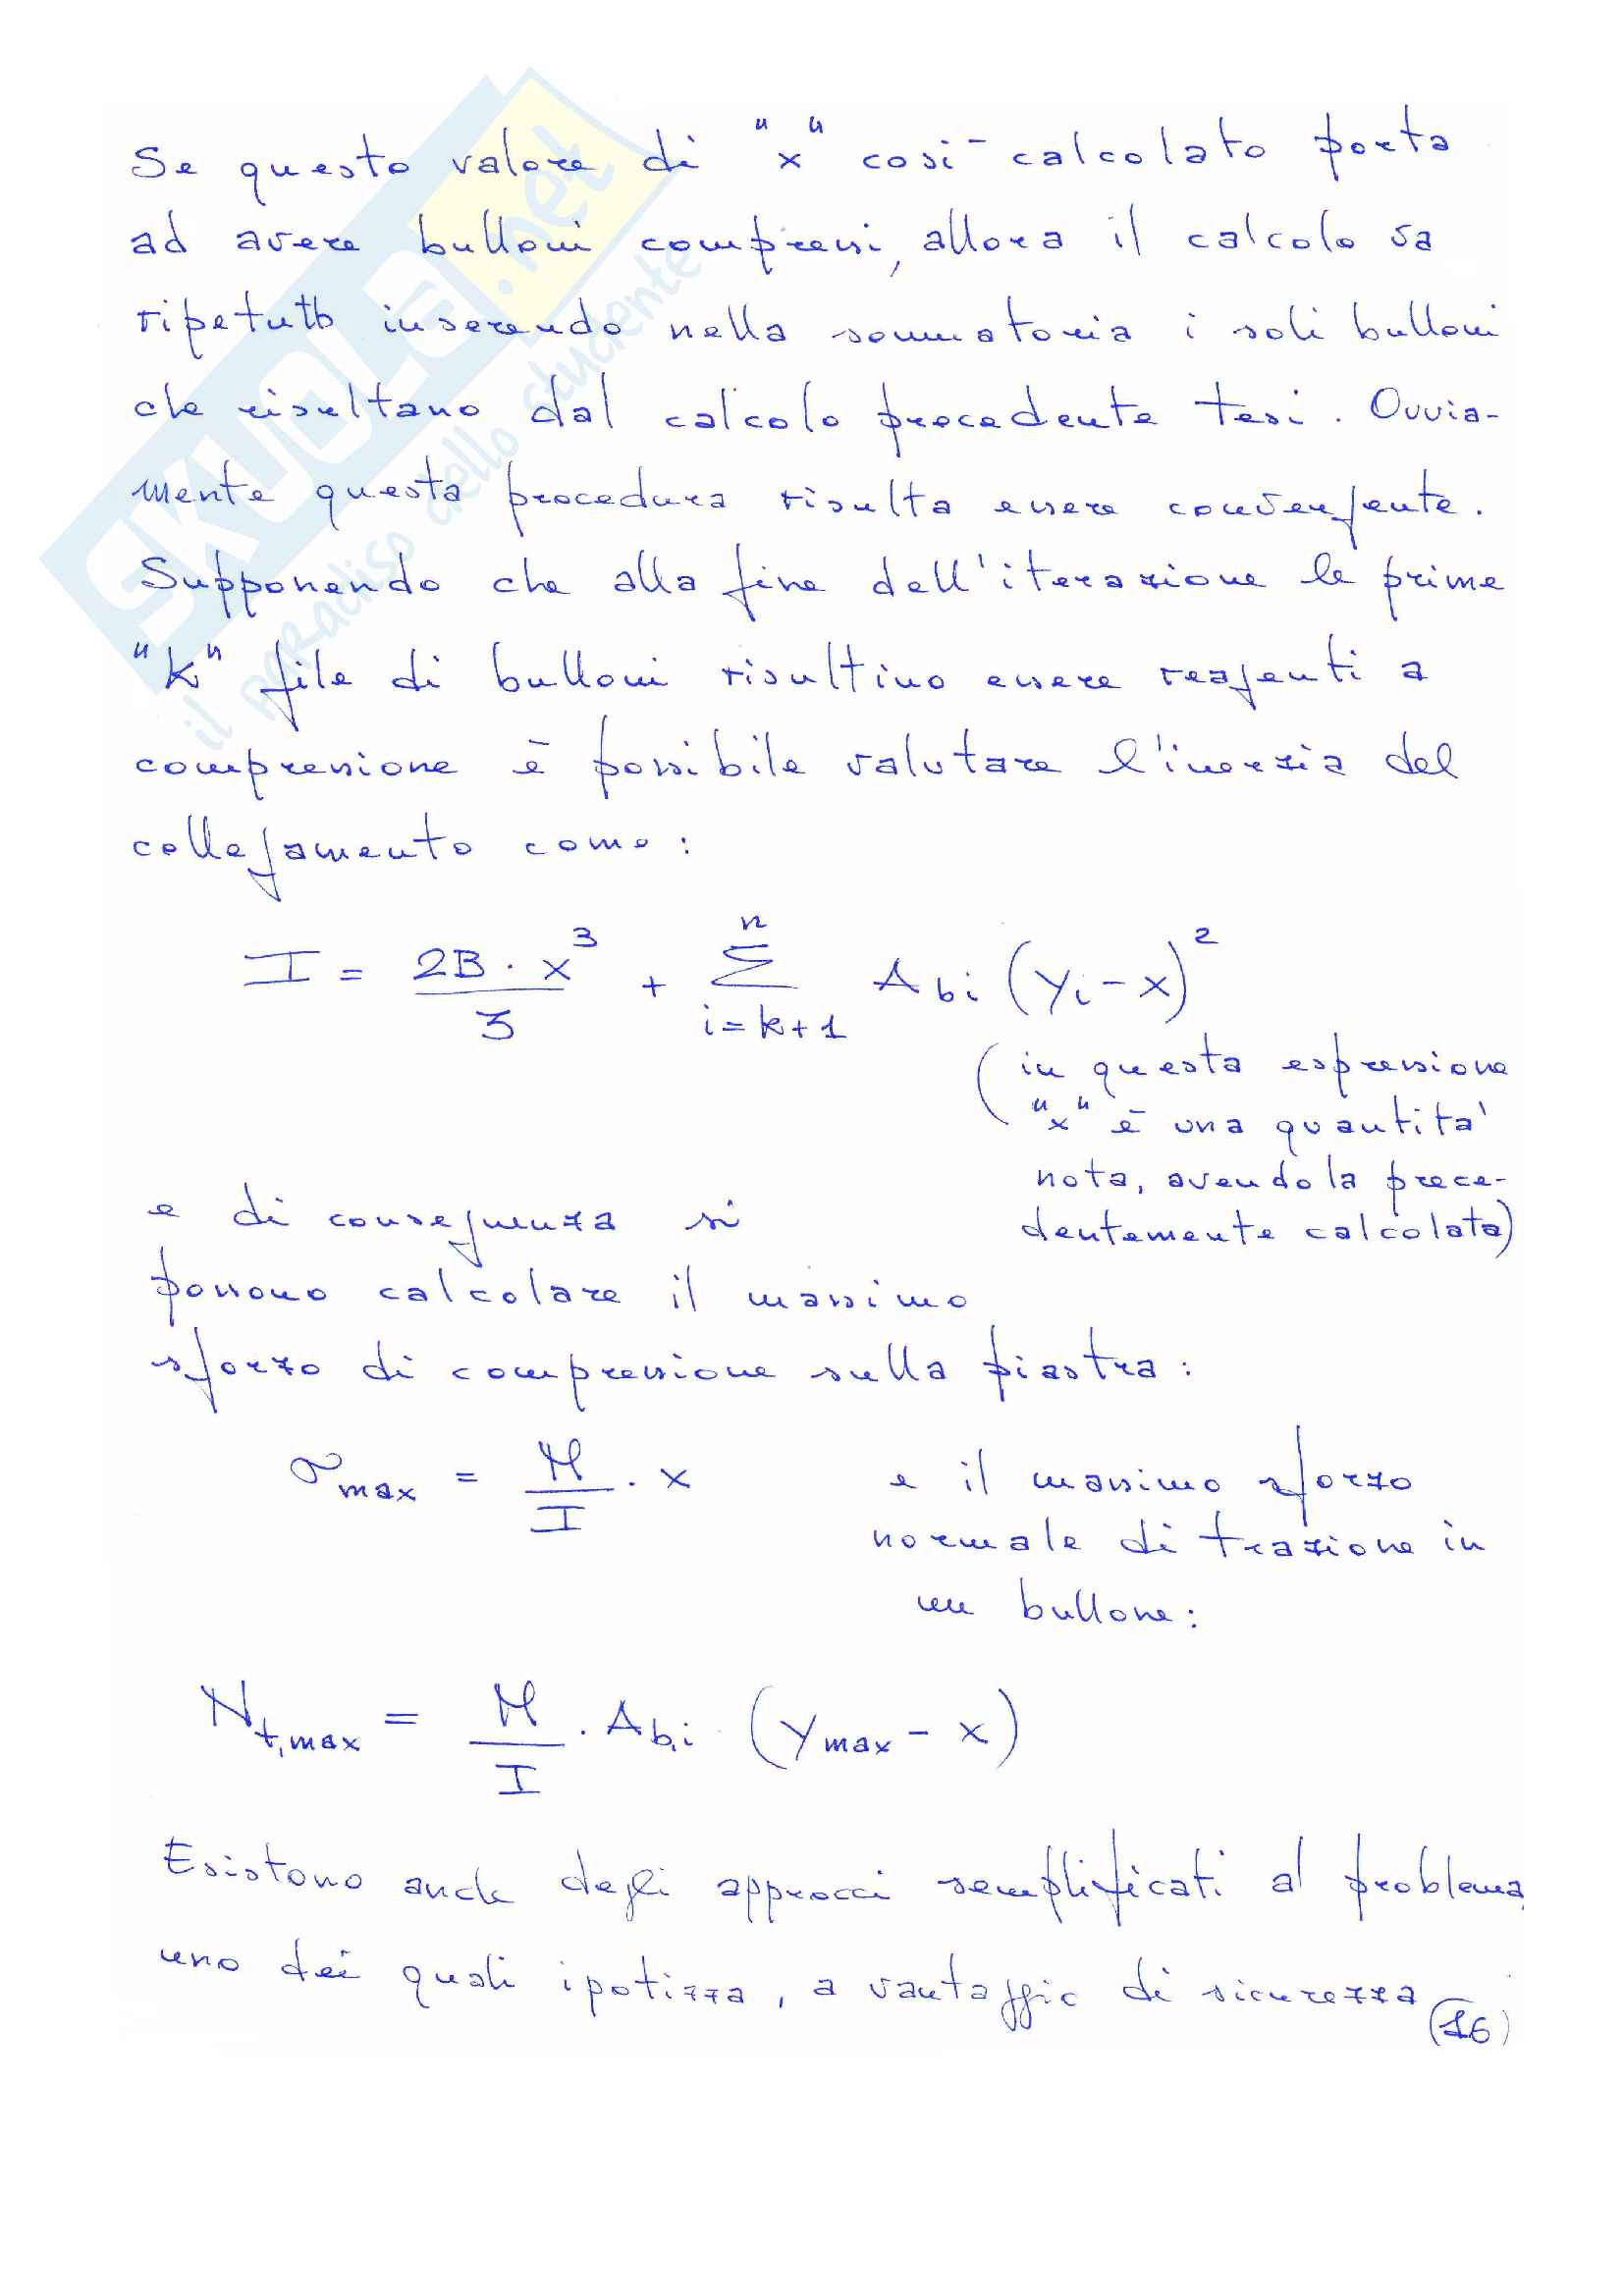 Se questo valore di "x" così calcolato porta
ad avere bulloni compressi, allora il calcolo va
ripetuto inserendo nella sommatoria i soli bulloni
che risultano dal calcolo precedente tesi. Ovvia-
mente questa procedura risulta essere convergente.
Supponendo che alla fine dell'iterazione le prime
"k" file di bulloni risultino essere reagenti a
compressione è possibile valutare l'inerzia del
collegamento come:
I = 2B · x³ / 3 + Σ_{i=k+1}^{n} A_{bi} (y_i - x)²
(in questa espressione
"x" è una quantità
nota, avendola prece-
dentemente calcolata)
e di conseguenza si
possono calcolare il massimo
sforzo di compressione sulla piastra:
σ_max = M / I · x e il massimo sforzo
normale di trazione in
un bullone:
N_{t,max} = M / I · A_{b,i} (y_max - x)
Esistono anche degli approcci semplificati al problema,
uno dei quali ipotizza, a vantaggio di sicurezza
(16)
SKUOLA.net
il paradiso dello studente